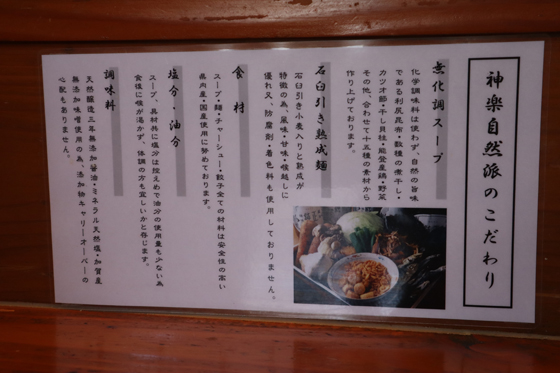 神楽自然派のこだわり
無化調スープ
化学調味料は使わず、自然の旨味
である利尻昆布・数種の煮干し・
カツオ節・干し貝柱・能登産鶏・野菜
その他、合わせて十三種の素材から
作り上げております。
石臼引き熟成麺
石臼引き小麦入りと熟成が
特徴の為、風味・甘味・喉越しに
優れ又、防腐剤・着色料も使用しておりません。
食材
スープ・麺・チャーシュー・餃子全ての材料は安全性の高い
県内産・国産使用に努めております。
塩分・油分
スープ、具材共に塩分は控えめで油分の使用量も少ない為
食後に喉が渇かず、体調の方も宜しいかと存じます。
調味料
天然醸造三年無添加醤油・ミネラル天然塩・加賀産
無添加味噌使用の為、添加物キャリーオーバーの
心配もありません。